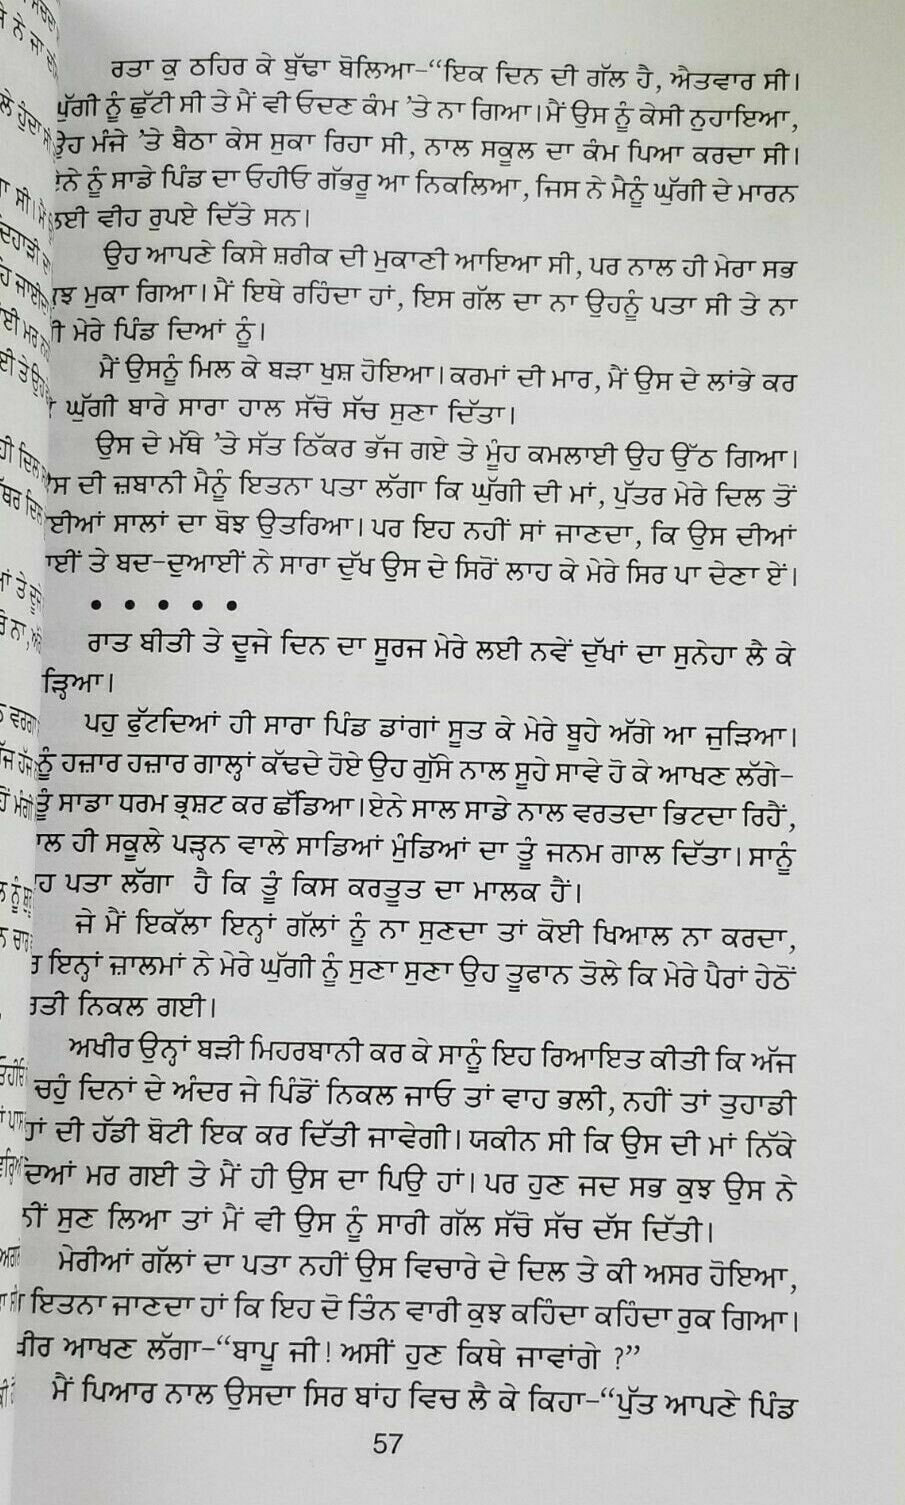 ਰਤਾ ਕੁ ਠਹਿਰ ਕੇ ਬੁੱਢਾ ਬੋਲਿਆ-“ਇਕ ਦਿਨ ਦੀ ਗੱਲ ਹੈ, ਐਤਵਾਰ ਸੀ।
ਘੁੱਗੀ ਨੂੰ ਛੁੱਟੀ ਸੀ ਤੇ ਮੈਂ ਵੀ ਓਦਣ ਕੰਮ ’ਤੇ ਨਾ ਗਿਆ। ਮੈਂ ਉਸ ਨੂੰ ਕੇਸੀ ਨੁਹਾਇਆ,
ਉਹ ਮੰਜੇ ’ਤੇ ਬੈਠਾ ਕੇਸ ਸੁਕਾ ਰਿਹਾ ਸੀ, ਨਾਲ ਸਕੂਲ ਦਾ ਕੰਮ ਪਿਆ ਕਰਦਾ ਸੀ।
ਨੂੰ ਸਾਡੇ ਪਿੰਡ ਦਾ ਓਹੀਓ ਗੱਭਰੂ ਆ ਨਿਕਲਿਆ, ਜਿਸ ਨੇ ਮੈਨੂੰ ਘੁੱਗੀ ਦੇ ਮਾਰਨ
ਲਈ ਵੀਹ ਰੁਪਏ ਦਿੱਤੇ ਸਨ।
ਉਹ ਆਪਣੇ ਕਿਸੇ ਸ਼ਰੀਕ ਦੀ ਮੁਕਾਣੀ ਆਇਆ ਸੀ, ਪਰ ਨਾਲ ਹੀ ਮੇਰਾ ਸਭ
ਮੁਕਾ ਗਿਆ। ਮੈਂ ਇਥੇ ਰਹਿੰਦਾ ਹਾਂ, ਇਸ ਗੱਲ ਦਾ ਨਾ ਉਹਨੂੰ ਪਤਾ ਸੀ ਤੇ ਨਾ
ਮੇਰੇ ਪਿੰਡ ਦਿਆਂ ਨੂੰ।
ਮੈਂ ਉਸਨੂੰ ਮਿਲ ਕੇ ਬੜਾ ਖੁਸ਼ ਹੋਇਆ। ਕਰਮਾਂ ਦੀ ਮਾਰ, ਮੈਂ ਉਸ ਦੇ ਲਾਂਭੇ ਕਰ
ਘੁੱਗੀ ਬਾਰੇ ਸਾਰਾ ਹਾਲ ਸੱਚੋ ਸੱਚ ਸੁਣਾ ਦਿੱਤਾ।
ਉਸ ਦੇ ਮੱਥੇ ’ਤੇ ਸੱਤ ਠਿੱਕਰ ਭੱਜ ਗਏ ਤੇ ਮੂੰਹ ਕਮਲਾਈ ਉਹ ਉੱਠ ਗਿਆ।
ਦੀ ਜ਼ਬਾਨੀ ਮੈਨੂੰ ਇਤਨਾ ਪਤਾ ਲੱਗਾ ਕਿ ਘੁੱਗੀ ਦੀ ਮਾਂ, ਪੁੱਤਰ ਮੇਰੇ ਦਿਲ ਤੋਂ
ਸਾਲਾਂ ਦਾ ਬੋਝ ਉਤਰਿਆ। ਪਰ ਇਹ ਨਹੀਂ ਸਾਂ ਜਾਣਦਾ, ਕਿ ਉਸ ਦੀਆਂ
ਤੇ ਬਦ-ਦੁਆਈਂ ਨੇ ਸਾਰਾ ਦੁੱਖ ਉਸ ਦੇ ਸਿਰੋਂ ਲਾਹ ਕੇ ਮੇਰੇ ਸਿਰ ਪਾ ਦੇਣਾ ਏਂ।
• • • • •
ਰਾਤ ਬੀਤੀ ਤੇ ਦੂਜੇ ਦਿਨ ਦਾ ਸੂਰਜ ਮੇਰੇ ਲਈ ਨਵੇਂ ਦੁੱਖਾਂ ਦਾ ਸੁਨੇਹਾ ਲੈ ਕੇ
ੜ੍ਹਿਆ।
ਪਹੁ ਫੁੱਟਦਿਆਂ ਹੀ ਸਾਰਾ ਪਿੰਡ ਡਾਂਗਾਂ ਸੂਤ ਕੇ ਮੇਰੇ ਬੂਹੇ ਅੱਗੇ ਆ ਜੁੜਿਆ।
ਨੂੰ ਹਜ਼ਾਰ ਹਜ਼ਾਰ ਗਾਲ੍ਹਾਂ ਕੱਢਦੇ ਹੋਏ ਉਹ ਗੁੱਸੇ ਨਾਲ ਸੂਹੇ ਸਾਵੇ ਹੋ ਕੇ ਆਖਣ ਲੱਗੇ-
ਤੂੰ ਸਾਡਾ ਧਰਮ ਭ੍ਰਸ਼ਟ ਕਰ ਛੱਡਿਆ। ਏਨੇ ਸਾਲ ਸਾਡੇ ਨਾਲ ਵਰਤਦਾ ਭਿਟਦਾ ਰਿਹੈਂ,
ਹੀ ਸਕੂਲੇ ਪੜ੍ਹਨ ਵਾਲੇ ਸਾਡਿਆਂ ਮੁੰਡਿਆਂ ਦਾ ਤੂੰ ਜਨਮ ਗਾਲ ਦਿੱਤਾ। ਸਾਨੂੰ
ਪਤਾ ਲੱਗਾ ਹੈ ਕਿ ਤੂੰ ਕਿਸ ਕਰਤੂਤ ਦਾ ਮਾਲਕ ਹੈਂ।
ਜੇ ਮੈਂ ਇਕੱਲਾ ਇਨ੍ਹਾਂ ਗੱਲਾਂ ਨੂੰ ਨਾ ਸੁਣਦਾ ਤਾਂ ਕੋਈ ਖਿਆਲ ਨਾ ਕਰਦਾ,
ਇਨ੍ਹਾਂ ਜ਼ਾਲਮਾਂ ਨੇ ਮੇਰੇ ਘੁੱਗੀ ਨੂੰ ਸੁਣਾ ਸੁਣਾ ਉਹ ਤੂਫਾਨ ਤੋਲੇ ਕਿ ਮੇਰੇ ਪੈਰਾਂ ਹੇਠੋਂ
ਰਤੀ ਨਿਕਲ ਗਈ।
ਅਖੀਰ ਉਨ੍ਹਾਂ ਬੜੀ ਮਿਹਰਬਾਨੀ ਕਰ ਕੇ ਸਾਨੂੰ ਇਹ ਰਿਆਇਤ ਕੀਤੀ ਕਿ ਅੱਜ
ਚਹੁੰ ਦਿਨਾਂ ਦੇ ਅੰਦਰ ਜੇ ਪਿੰਡੋਂ ਨਿਕਲ ਜਾਓ ਤਾਂ ਵਾਹ ਭਲੀ, ਨਹੀਂ ਤਾਂ ਤੁਹਾਡੀ
ਦੀ ਹੱਡੀ ਬੋਟੀ ਇਕ ਕਰ ਦਿੱਤੀ ਜਾਵੇਗੀ। ਯਕੀਨ ਸੀ ਕਿ ਉਸ ਦੀ ਮਾਂ ਨਿੱਕੇ
ਦਿਆਂ ਮਰ ਗਈ ਤੇ ਮੈਂ ਹੀ ਉਸ ਦਾ ਪਿਉ ਹਾਂ। ਪਰ ਹੁਣ ਜਦ ਸਭ ਕੁਝ ਉਸ ਨੇ
ਸੁਣ ਲਿਆ ਤਾਂ ਮੈਂ ਵੀ ਉਸ ਨੂੰ ਸਾਰੀ ਗੱਲ ਸੱਚੋ ਸੱਚ ਦੱਸ ਦਿੱਤੀ।
ਮੇਰੀਆਂ ਗੱਲਾਂ ਦਾ ਪਤਾ ਨਹੀਂ ਉਸ ਵਿਚਾਰੇ ਦੇ ਦਿਲ ਤੇ ਕੀ ਅਸਰ ਹੋਇਆ,
ਇਤਨਾ ਜਾਣਦਾ ਹਾਂ ਕਿ ਇਹ ਦੋ ਤਿੰਨ ਵਾਰੀ ਕੁਝ ਕਹਿੰਦਾ ਕਹਿੰਦਾ ਰੁਕ ਗਿਆ।
ਖੀਰ ਆਖਣ ਲੱਗਾ-“ਬਾਪੂ ਜੀ! ਅਸੀਂ ਹੁਣ ਕਿਥੇ ਜਾਵਾਂਗੇ ?”
ਮੈਂ ਪਿਆਰ ਨਾਲ ਉਸਦਾ ਸਿਰ ਬਾਂਹ ਵਿਚ ਲੈ ਕੇ ਕਿਹਾ-“ਪੁੱਤ ਆਪਣੇ ਪਿੰਡ
57